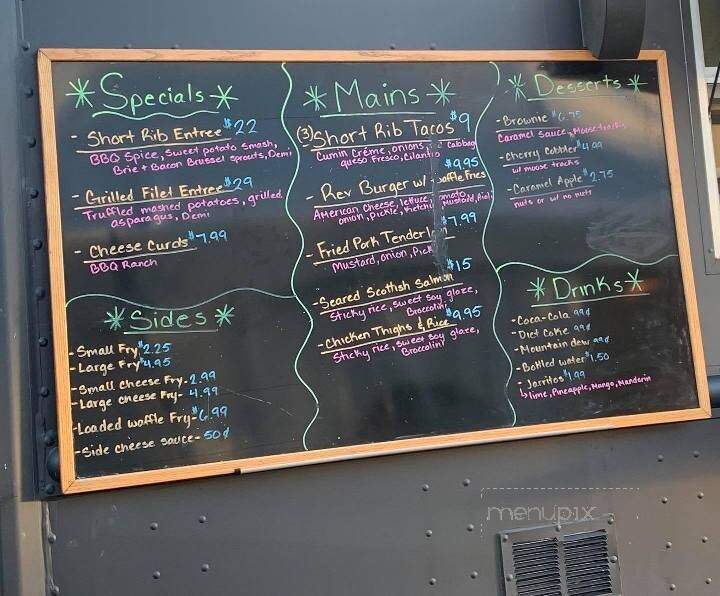 * Specials *
- Short Rib Entree $22
BBQ Spice, sweet potato smash,
Brie + Bacon Brussel sprouts, Demi
- Grilled Filet Entree $29
Truffled mashed potatoes, grilled
asparagus, Demi
- Cheese Curds $7.99
BBQ Ranch
* Sides *
- Small Fry $2.25
- Large Fry $4.95
- Small cheese Fry - 2.99
- Large cheese Fry - 4.99
- Loaded waffle Fry - $6.99
- Side cheese sauce - 50¢
* Mains *
(3) Short Rib Tacos $9
Cumin Crème, onions, Cabbag
queso Fresco, cilantro
- Rev Burger w/ waffle Fries $9.95
American cheese, lettuce, tomato,
onion, pickle, Ketchup, Mustard, Aioli
- Fried Pork Tenderloin $7.99
Mustard, onion, Pick
- Seared Scottish Salmon $15
Sticky rice, sweet soy glaze,
Broccolini
- Chicken Thighs & Rice $9.95
Sticky rice, sweet soy glaze,
Broccolini
* Desserts *
- Brownie $6.75
Caramel Sauce, Moose tracks
- Cherry Cobbler $4.99
w/ moose tracks
- Caramel Apple $2.75
nuts or w/ no nuts
* Drinks *
- Coca-Cola 99¢
- Diet Coke 99¢
- Mountain dew 99¢
- Bottled water $1.50
- Jarritos $1.99
↳ lime, Pineapple, Mango, Manderin
menupix